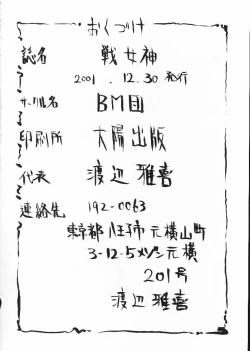 おくづけ
誌名 戦女神
2001.12.30 発行
サークル名 BM団
印刷所 大陽出版
代表 渡辺 雅喜
連絡先 192-0063
東京都 八王子市 元横山町
3-12-5 メゾン元横
201号
渡辺 雅喜